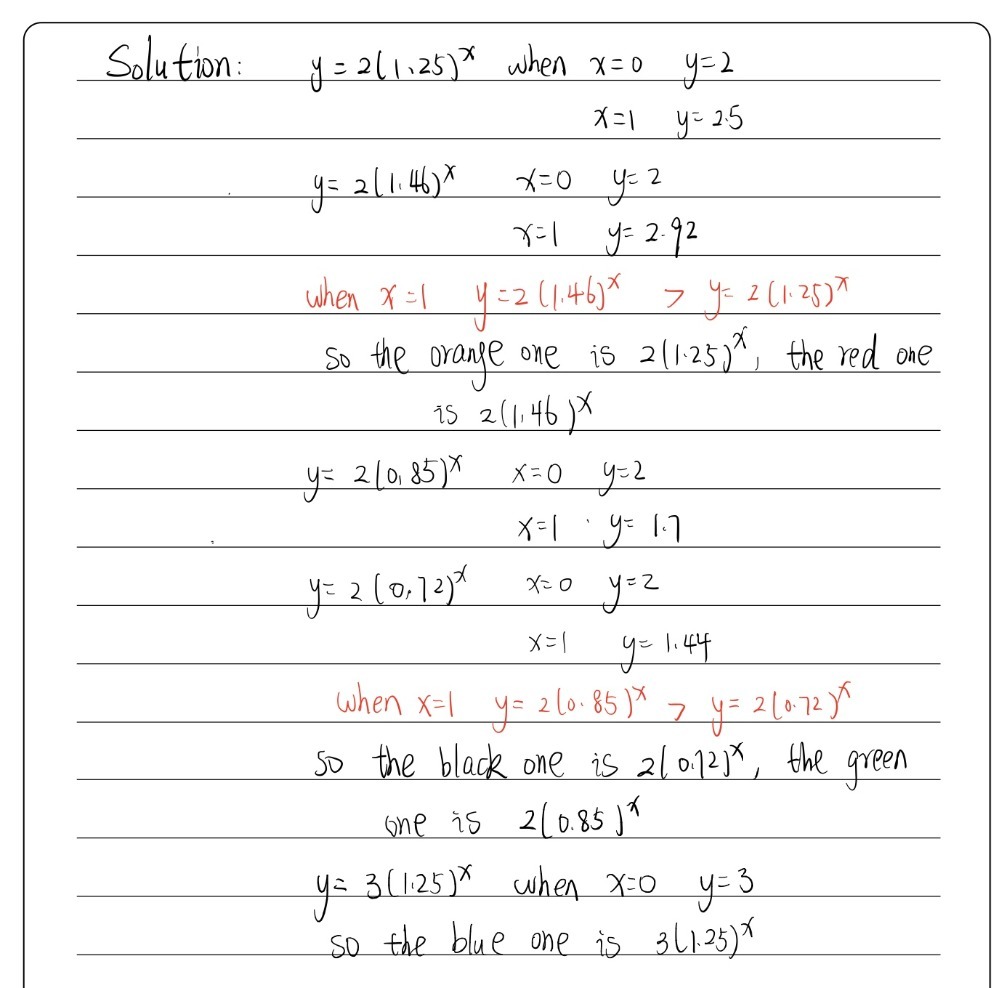 Solution: y = 2(1.25)^x when x=0 y=2
x=1 y=2.5
y=2(1.46)^x x=0 y=2
x=1 y=2.92
when x=1 y=2(1.46)^x > y=2(1.25)^x
so the orange one is 2(1.25)^x, the red one
is 2(1.46)^x
y=2(0.85)^x x=0 y=2
x=1 y=1.7
y=2(0.72)^x x=0 y=2
x=1 y=1.44
when x=1 y=2(0.85)^x > y=2(0.72)^x
so the black one is 2(0.72)^x, the green
one is 2(0.85)^x
y=3(1.25)^x when x=0 y=3
so the blue one is 3(1.25)^x